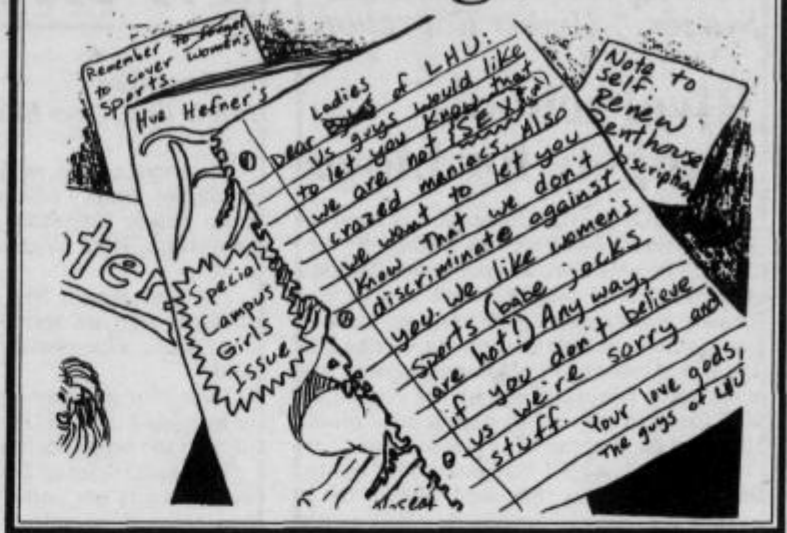 Remember to forget
to cover women's
sports.
Hue Hefner's
Special
Campus
Girls
Issue
Ladies
Dear of LHU:
Us guys would like
to let you know that
we are not (SEX!)
crazed maniacs. Also
we want to let you
know That we don't
discriminate against
you. We like women's
sports (babe jocks
are hot!) Any way,
if you don't believe
us we're sorry and
stuff.
Your love gods,
The guys of LHU
Note to
self:
Renew
Penthouse